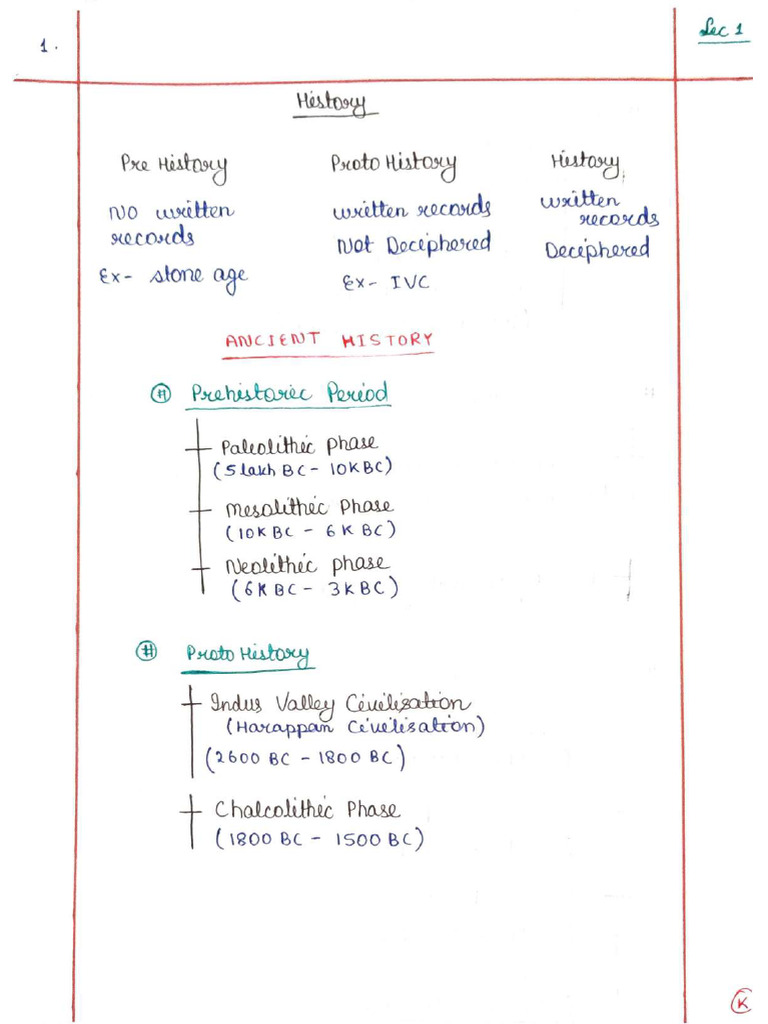 1.
Lec 1
History
Pre History
Proto History
History
NO written
records
Ex- stone age
written records
Not Deciphered
Ex- IVC
written
records
Deciphered
ANCIENT HISTORY
# Prehistoric Period
Paleolithic phase
(5 lakh BC - 10K BC)
Mesolithic Phase
(10K BC - 6K BC)
Neolithic phase
(6K BC - 3K BC)
# Proto History
Indus Valley Civilisation
(Harappan Civilisation)
(2600 BC - 1800 BC)
Chalcolithic Phase
(1800 BC - 1500 BC)
K